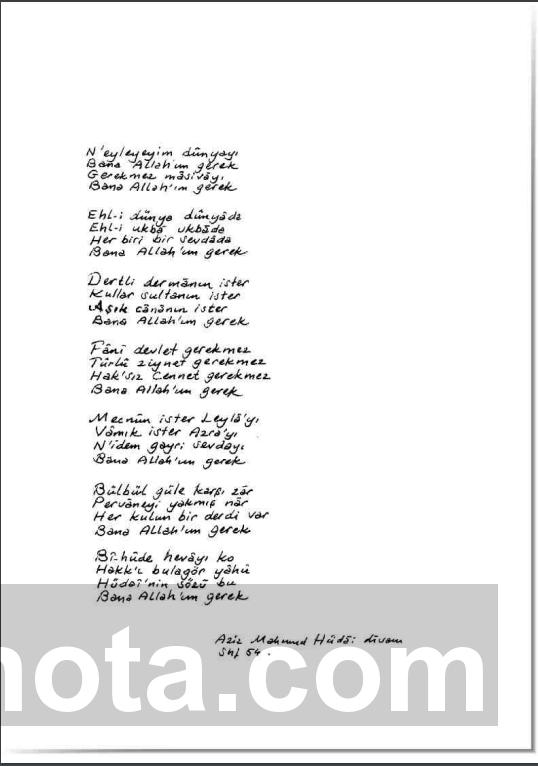 N'eyleyeyim dünyayı
Bana Allah'ım gerek
Gerekmez mâsivâyı
Bana Allah'ım gerek
Ehl-i dünya dünyâda
Ehl-i ukbâ ukbâda
Her biri bir sevdâda
Bana Allah'ım gerek
Dertli dermânın ister
Kullar sultanın ister
Aşık cânânın ister
Bana Allah'ım gerek
Fânî devlet gerekmez
Türlü ziynet gerekmez
Hak'sız Cennet gerekmez
Bana Allah'ım gerek
Mecnûn ister Leylâ'yı
Vâmık ister Azrâ'yı
N'idem gayri sevdayı
Bana Allah'ım gerek
Bülbül güle karşı zâr
Pervâneyi yakmış nâr
Her kulun bir derdi var
Bana Allah'ım gerek
Bî-hûde hevâyı ko
Hakk'ı bulagör yâhû
Hüdâî'nin sözü bu
Bana Allah'ım gerek
Aziz Mahmud Hüdâi divanı
Shf 54.
nota.com